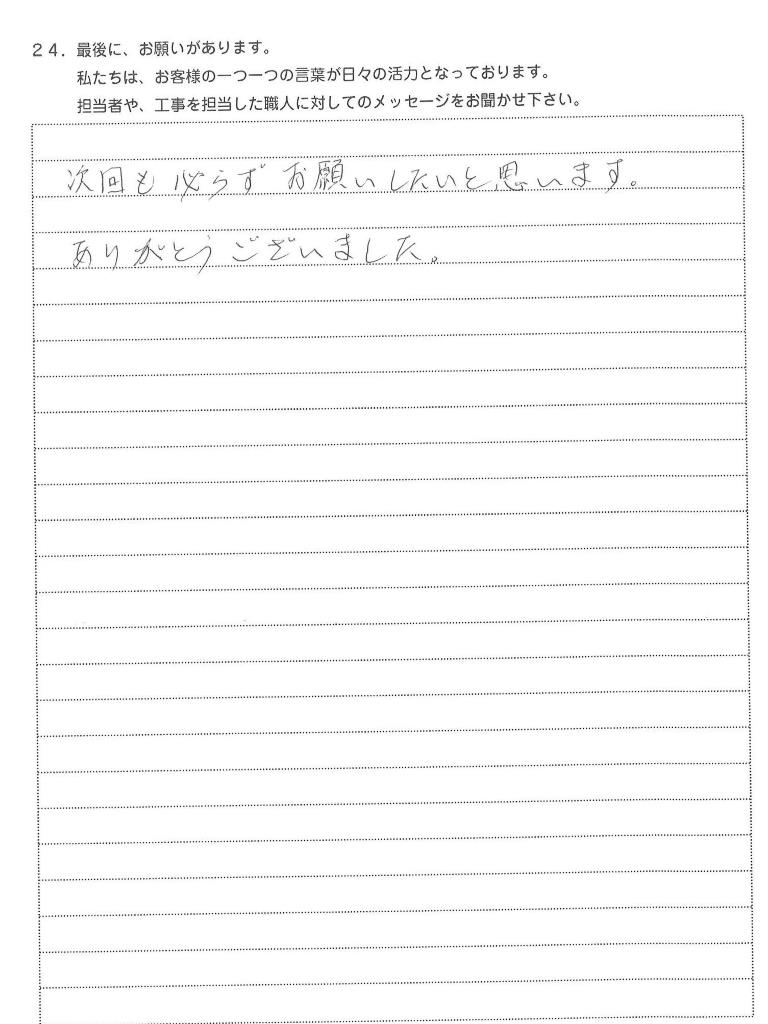 24. 最後に、お願いがあります。
私たちは、お客様の一つ一つの言葉が日々の活力となっております。
担当者や、工事を担当した職人に対してのメッセージをお聞かせ下さい。
次回も必らずお願いしたいと思います。
ありがとうございました。